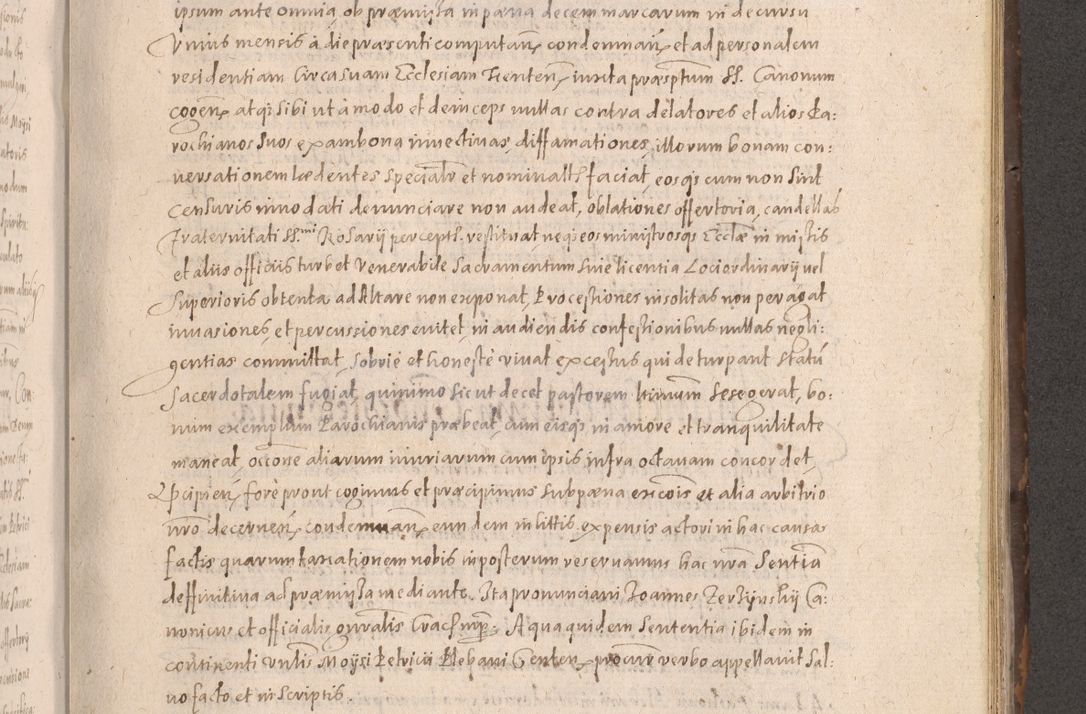 ipsum ante omnia, ob præmissa in pæna decem marcarum in decursu
Vnius mensis à die præsenti computan: condemnan: et ad personalem
residentiam circa suam Ecclesiam Tenten: iuxta præsptum SS. Canonum
cogen: atq3 sibi ut à modo et deinceps nullas contra delatores et alios Pa:
rochianos suos ex ambona inuectiuas, diffamationes, illorum bonam con:
uersationem lædentes specialr et nominallr faciat, eosq3 cum non sint
censuris innodati denunciare non audeat, oblationes offertoria, candellas
Fraternitati SS.mi Rosarij percepts. restituat, neq3 eos ministrosq3 Ecclæ in missis
et aliis officiis turbet Venerabile Sacramentum sine licentia Lociordinarij uel
Superioris obtenta ad Altare non exponat, Processiones insolitas non peragat
inuasiones, et percussiones euitet, in audiendis confessionibus nullas negli:
gentias committat, sobrié et honesté viuat excessus qui deturpant statū
Sacerdotalem fugiat, quinimo sicut decet pastorem se se gerat, bo:
num exemplum Parochianis præbeat, cum eisq3 in amore et tranquilitate
maneat, occone aliarum iniuriarum cum ipsis infra octauam concordet,
fore prout cogimus et præcipimus sub pæna excois et alia arbitrio
nro decernen: condemnan: eundem in littis expensis actori in hac causa
factis quarum taxationem nobis in posterum reseruamus hac nra Sententia
deffinitiua ad præmissa mediante. Ita pronunciaui Joannes Zerzynskij Ca:
nonicus et officialis gnralis Crac mpp: A qua quidem Sententia ibidem in
continenti Vnlis Moysi Petricii Plebani Tenten: procur verbo appellauit sal:
uo facto et in scriptis.